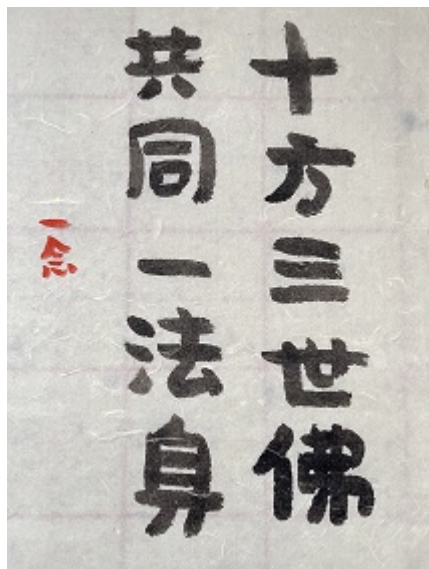 十方三世佛
共同一法身
一念